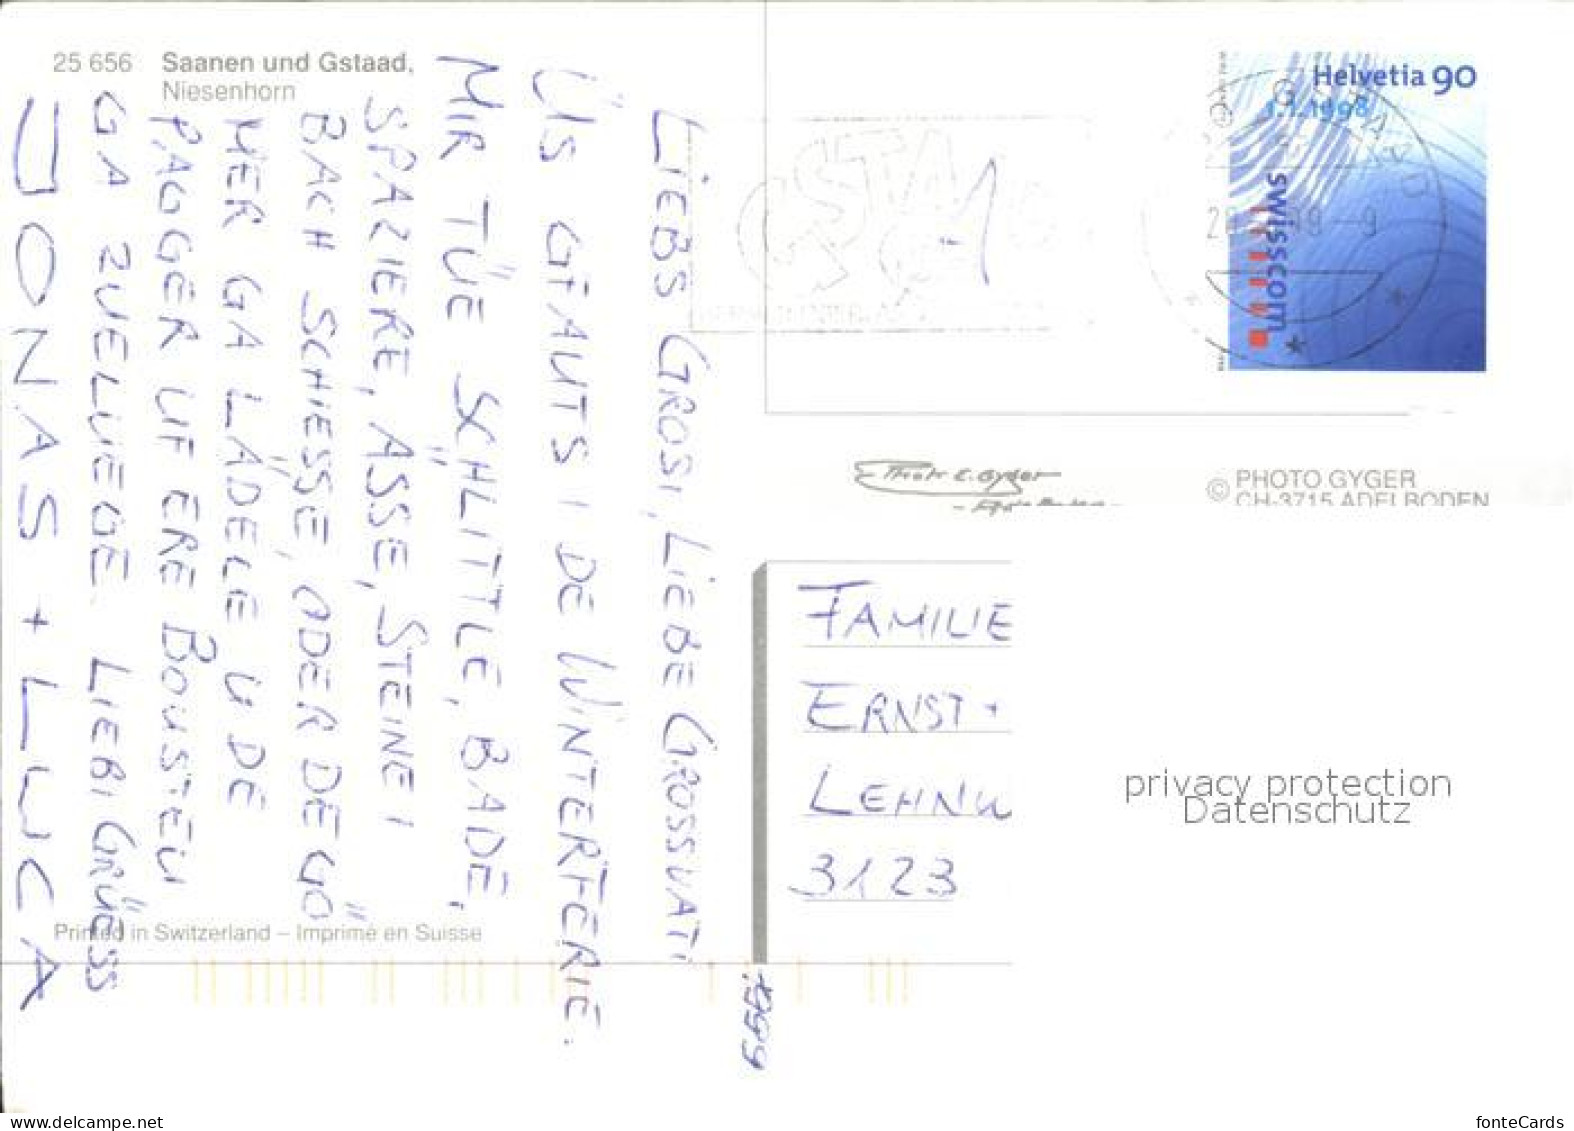 25 656 Saanen und Gstaad,
Niesenhorn
LIEBS GROSI, LIEBE GROSSVATI
ÜS GFAUTS I DE WINTERFERIE.
MIR TÜE SCHLITTLE, BADE,
SPAZIERE, ÄSSE, STEINE I
BACH SCHIESSE, ODER DE GÖ
MER GA LÄDELE U DE
PAGGER UF ERE BOUSTEU
GA ZUELUEGE. LIEBI GRÜESS
JONAS + LUCA
Printed in Switzerland – Imprimé en Suisse
1999
Helvetia 90
1.1.1998
swisscom
GSTAAD
GSTAAD
© PHOTO GYGER
CH-3715 ADELBODEN
Photo E. Gyger
- Adelboden -
FAMILIE
ERNST +
LEHNW
3123
privacy protection
Datenschutz
www.delcampe.net
fonteCards